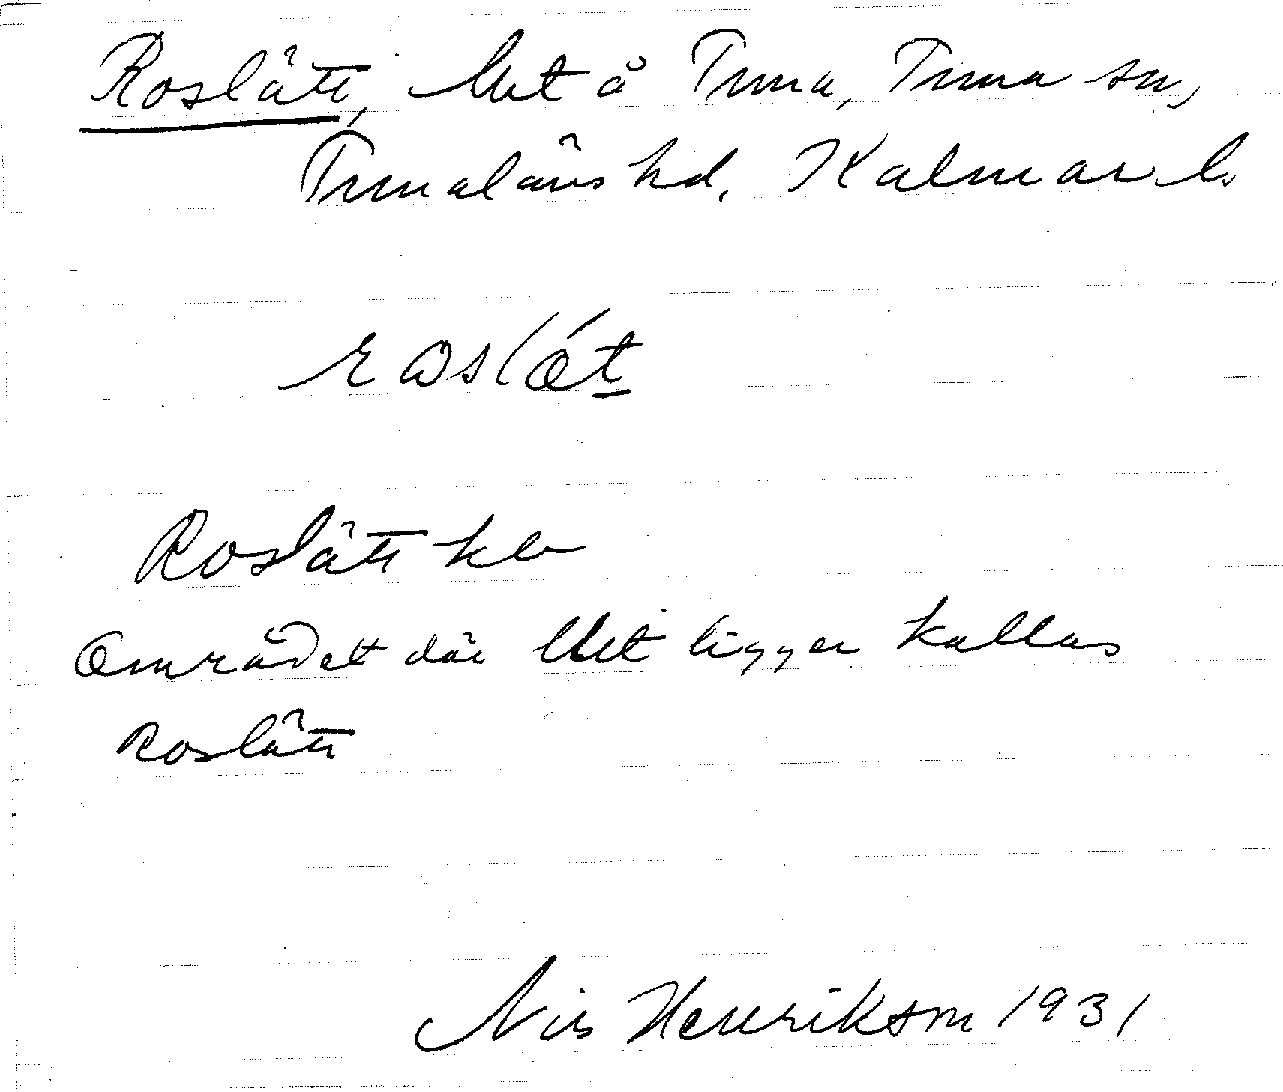 Roslätt, lht å Tuna, Tuna sn,
Tunaläns hd. Kalmar l.
roslǽt
Roslätt kb
Området där lht ligger kallas
Roslätt
Nils Henrikson 1931